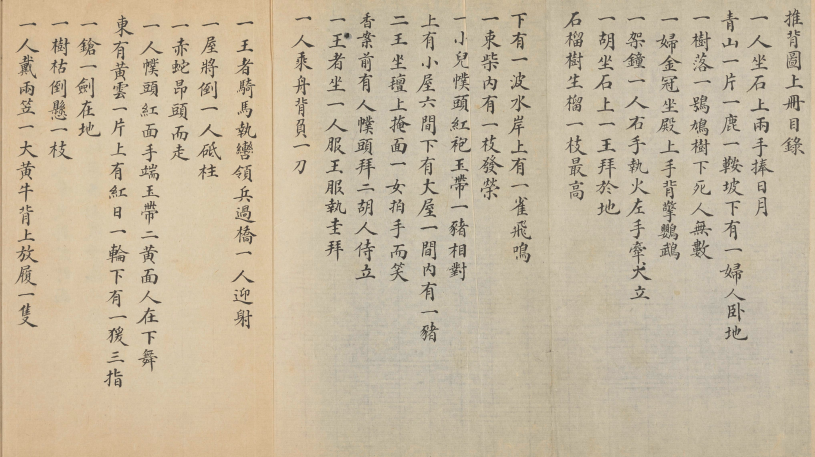 推背圖上冊目錄
一人坐石上兩手捧日月
青山一片一鹿一鞍坡下有一婦人卧地
一樹落一鴞鳩樹下死人無數
一婦金冠坐殿上手背擎鸚鵡
一架鐘一人右手執火左手牽犬立
一胡坐石上一王拜於地
石榴樹生榴一枝最高
下有一波水岸上有一雀飛鳴
一束柴內有一枝發榮
一小兒幞頭紅袍玉帶一豬相對
上有小屋六間下有大屋一間內有一豬
二王坐壇上掩面一女拍手而笑
香案前有人幞頭拜二胡人侍立
一王者坐一人服王服執圭拜
一人乘舟背負一刀
一王者騎馬執轡領兵過橋一人迎射
一屋將倒一人砥柱
一赤蛇昂頭而走
一人幞頭紅面手端玉帶二黃面人在下舞
東有黃雲一片上有紅日一輪下有一猨三指
一鎗一劍在地
一樹枯倒懸一枝
一人戴雨笠一大黃牛背上放履一隻